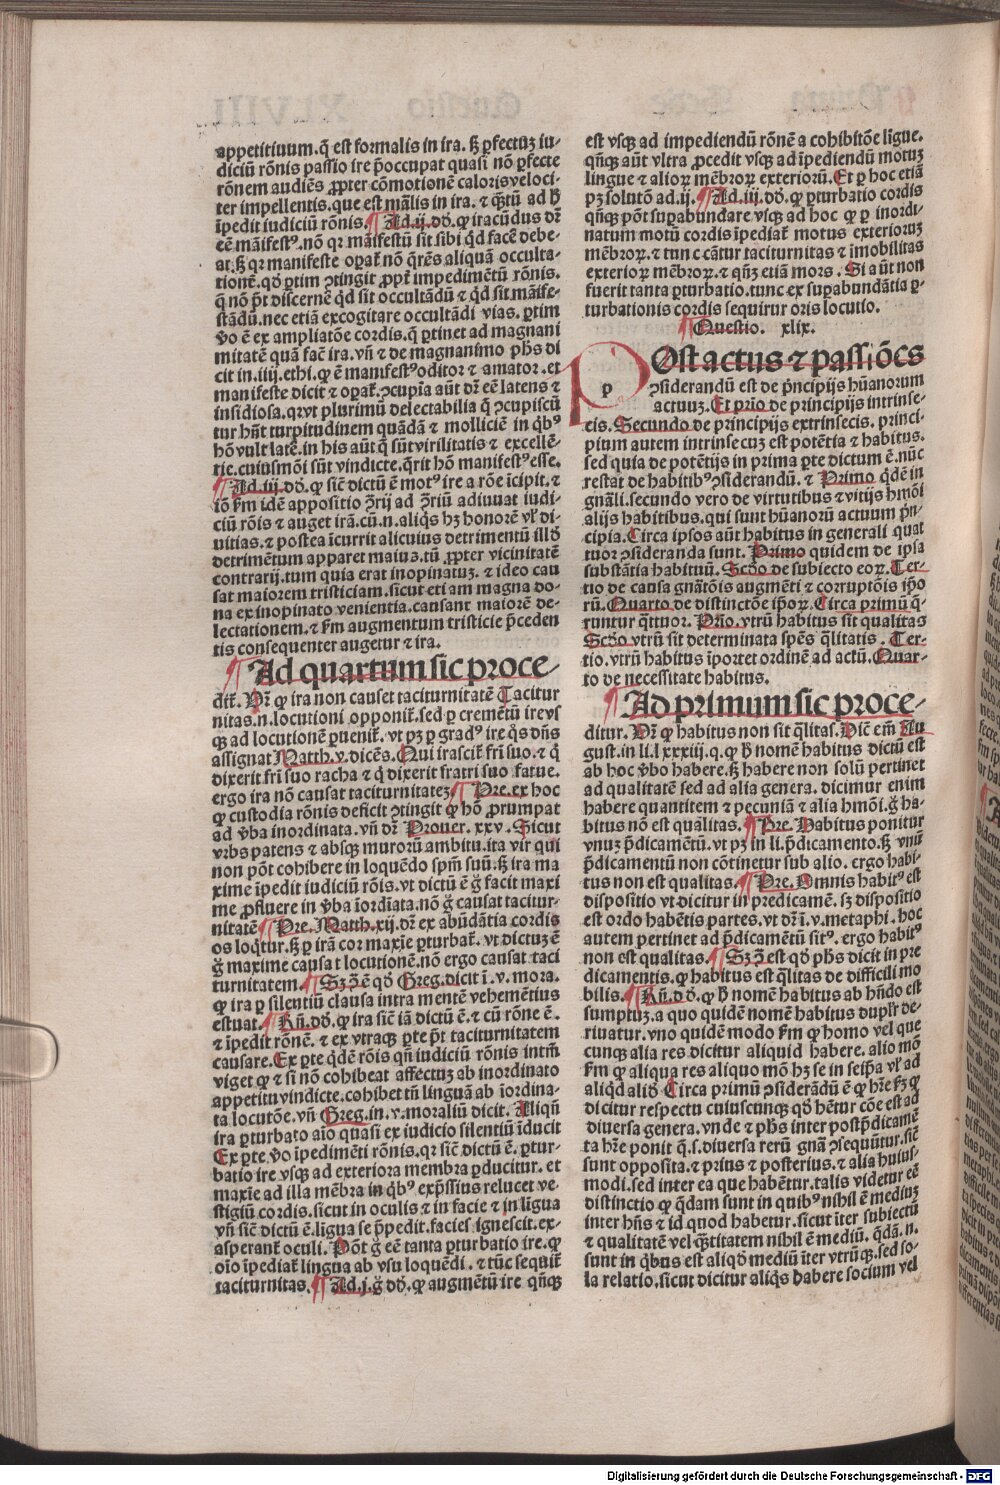 appetitiuum.q̄ est formalis in ira. ſꝫ ꝑfectuꝫ iu-
diciū rōnis passio ire p̄occupat quasi nō ꝑfecte
rōnem audiēs ꝓpter cōmotionē caloris veloci-
ter impellentis.que est mālis in ira. ⁊ qꝫtū ad ħ
īpedit iudiciū rōnis. ¶ Ad.ij.dō. ꝙ iracūdus dr̄
eē māifestꝰ.nō qꝛ māifestū sit sibi qd facē debe-
at.ſꝫ qꝛ manifeste oꝑat̄ nō q̄rēs aliquā occulta-
tionē.qđ ꝑtim ↄtingit ꝓpt̄ impedimētū rōnis.
q̄ nō pt̄ discernē qd sit occultādū ⁊ qd sit māife-
stādū.nec etiā excogitare occultādi vias. ꝑtim
ꝟo ē ex ampliatōe cordis.q̄ ꝑtinet ad magnani
mitatē quā facē ira. vn̄ ⁊ de magnanimo ph̄s di
cit in.iiij.ethi.ꝙ ē manifestꝰ oditor ⁊ amator. et
manifeste dicit ⁊ oꝑat̄.ↄcupīa aūt dr̄ eē latens ⁊
insidiosa.qꝛ vt plurimū delectabilia q̄ ↄcupiscū
tur hn̄t turpitudinem quādā ⁊ molliciē in qͥbꝰ
hō vult latē.in his aūt q̄ sūt virilitatis ⁊ excellē-
tie.cuiusmōi sūt vindicte.q̄rit hō manifestꝰ esse.
¶ Ad.iij.dō. ꝙ sic̄ dictū ē motꝰ ire a rōe īcipit. ⁊
iō ẜm idē appositio ↄ̄rij ad ↄ̄riū adiuuat iudi-
ciū rōis ⁊ auget irā.cū.n.aliqͥs hꝫ honorē vl̓ di-
uitias.⁊ postea īcurrit alicuius detrimētū illđ
detrimētum apparet maius.tū ꝓpter vicinitatē
contrarij.tum quia erat inopinatuꝫ. ⁊ ideo cau
sat maiorem tristiciam.sicut etiam magna bo-
na ex inopinato venientia.causant maiorē de-
lectationem.⁊ ẜm augmentum tristicie p̄ceden
tis consequenter augetur ⁊ ira.
¶ Ad quartum sic proce-
dit̄. Vr̄ ꝙ ira non causet taciturnitatē Tacitur
nitas.n.locutioni opponit̄.sed ꝑ cremētū ire vsꝫ
qꝫ ad locutionē ꝑuenit̄. vt pꝫ ꝑ gradꝰ ire q̓s dn̄s
assignat Matth.v.dicēs. Qui irascit̄ fr̄i suo. ⁊ q̄
dixerit fr̄i suo racha ⁊ q̄ dixerit fratri suo fatue.
ergo ira nō causat taciturnitateꝫ ¶ Pre.ex hoc
ꝙ custodia rōnis deficit ↄtingit ꝙ hō ꝓrumpat
ad ꝟba inordinata. vn̄ dr̄ Prouer. xxv. Sicut
vrbs patens ⁊ absqꝫ murorū ambitu.ita vir qui
non pōt cohibere in loquēdo spm̄ suū.ſꝫ ira ma
xime īpedit iudiciū rōis.vt dictū ē ḡ facit maxi
me ꝓfluere in ꝟba īordīata.nō ḡ causat tacitur-
nitatē ¶ Pre. Matth.xij.dr̄ ex abūdātia cordis
os loqͥtur.ſꝫ ꝑ irā cor maxīe ꝑturbat̄. vt dictuꝫ ē
ḡ maxime causat locutionē.nō ergo causat taci
turnitatem. ¶ Sꝫ ↄ̄ ē qđ Greg.dicit ī.v. mora.
ꝙ ira ꝑ silentiū clausa intra mentē vehemētius
estuat. ¶ Rn̄.dō.ꝙ ira sic̄ iā dictū ē.⁊ cū rōne ē.
⁊ īpedit rōnē. ⁊ ex vtraqꝫ ꝑte pt̄ taciturnitatem
causare. Ex ꝑte qͥdē rōis qn̄ iudiciū rōnis intm̄
viget ꝙ ⁊ si nō cohibeat affectuꝫ ab inordinato
appetitu vindicte.cohibet tn̄ linguā ab īordina-
ta locutōe. vn̄ Greg.in.v.moraliū dicit. Aliqn̄
ira ꝑturbato aīo quasi ex iudicio silentiū īducit
Ex ꝑte.ꝟo īpedimēti rōnis.qꝛ sic̄ dictū ē. ꝑtur-
batio ire vsqꝫ ad exteriora membra ꝑducitur. et
maxīe ad illa mēbra in qͥbꝰ exp̄ssius relucet ve-
stigiū cordis.sicut in oculis ⁊ in facie ⁊ in līgua
vn̄ sic̄ dictū ē.līgua se p̄pedit.facies ignescit.ex-
asperant̄ oculi. Pōt ḡ eē tanta ꝑturbatio ire.ꝙ
oīo īpediat̄ lingua ab vsu loquēdi. ⁊ tūc sequit̄
taciturnitas. ¶ Ad.j.ḡ dō.ꝙ augmētū ire qn̄qꝫ
est vsqꝫ ad impediendū rōnē a cohibitōe līgue.
qn̄qꝫ aūt vltra ꝓcedit vsqꝫ ad īpediendū motuꝫ
lingue ⁊ alioꝝ mēbroꝝ exterioru. Et ꝑ hoc etiā
pꝫ solutō ad.ij. ¶ Ad.iij.dō. ꝙ ꝑturbatio cordis
qn̄qꝫ pōt suꝑabundare vsqꝫ ad hoc ꝙ ꝑ inordi-
natum motū cordis īpediat̄ motus exterioruꝫ
mēbroꝝ.⁊ tunc cātur taciturnitas ⁊ īmobilitas
exterioꝝ mēbroꝝ. ⁊ qn̄ꝫ etiā mors. Si aūt non
fuerit tanta ꝑturbatio.tunc ex suꝑabundātia ꝑ-
turbationis cordis sequitur oris locutio.
¶ Questio. xlix.
POst actus ⁊ passiōes
ↄsiderandū est de p̄ncipijs hūanorum
actuuꝫ. Et prīo de principijs intrinse-
cis. Secundo de principijs extrinsecis. princi-
pium autem intrinsecuꝫ est potētia ⁊ habitus.
sed quia de potētijs in prima ꝑte dictum ē.nūc
restat de habitibꝰ ↄsiderandū. ⁊ Primo qͥdē in
gn̄ali.secundo vero de virtutibus ⁊ vitijs hmōi
alijs habitibus.qui sunt hūanorū actuum p̄n-
cipia. Circa ipsos aūt habitus in generali quat
tuor ↄsideranda sunt. Primo quidem de ipsa
substātia habituū. Scđo de subiecto eoꝝ. Ter-
tio de causa gn̄atōis augmēti ⁊ corruptōis ip̄o
rū. Quarto de distinctōe ip̄oꝝ. Circa primū q̄-
runtur q̄ttuor. Prīo.vtrū habitus sit qualitas
Scđo vtrū sit determinata spēs qͥlitatis. Ter-
tio.vtrū habitus īportet ordinē ad actū. Quar-
to de necessitate habitus.
¶ Ad primum sic proce-
ditur. Vr̄ ꝙ habitus non sit qͥlitas. Dic̄ em̄ Au
gust.in li.lxxxiij.q.ꝙ ħ nomē habitus dictū est
ab hoc ꝟbo habere.ſꝫ habere non solū pertinet
ad qualitatē sed ad alia genera. dicimur enim
habere quantitatem ⁊ pecuniā ⁊ alia hmōi.ḡ ha-
bitus nō est qualitas. ¶ Pre. Habitus ponitur
vnuꝫ p̄dicamētū.vt pꝫ in li.p̄dicamento.ſꝫ vnū
p̄dicamentū non cōtinetur sub alio. ergo habi-
tus non est qualitas. ¶ Pre. Omnis habitꝰ est
dispositio vt dicitur in predicamē. sꝫ dispositio
est ordo habētis partes. vt dr̄ ī.v.metaphi. hoc
autem pertinet ad p̄dicamētū sitꝰ. ergo habitꝰ
non est qualitas. ¶ Sꝫ ↄ̄ est qđ ph̄s dicit in pre
dicamentis.ꝙ habitus est qͥlitas de difficili mo
bilis. ¶ Rn̄.dō.ꝙ ħ nomē habitus ab hn̄do est
sumptuꝫ.a quo quidē nomē habitus duplr̄ de-
riuatur. vno quidē modo ẜm ꝙ homo vel que
cunqꝫ alia res dicitur aliquid habere. alio mō
ẜm ꝙ aliqua res aliquo mō hꝫ se in seipa vl̓ ad
aliqͥd aliđ Circa primū ↄsiderādū ē ꝙ hr̄e ẜꝫ ꝙ
dicitur respectu cuiuscunqꝫ qđ hētur cōe est ad
diuersa genera. vnde ⁊ ph̄s inter postp̄dicamē
ta hr̄e ponit q̄.s.diuersa rerū gn̄a ↄsequūtur.sic̄
sunt opposita.⁊ prius ⁊ posterius.⁊ alia huius-
modi.sed inter ea que habētur.talis videtur eē
distinctio ꝙ q̄dam sunt in quibꝰ nihil ē mediuꝫ
inter hn̄s ⁊ id quod habetur.sicut īter subiectū
⁊ qualitatē vel qͣtitatem nihil ē mediū. q̄dā.n.
sunt in qͥbus est aliqđ mediū īter vtrūqꝫ.sed so-
la relatio.sicut dicitur aliqͥs habere socium vel
Digitalisierung gefördert durch die Deutsche Forschungsgemeinschaft - DFG